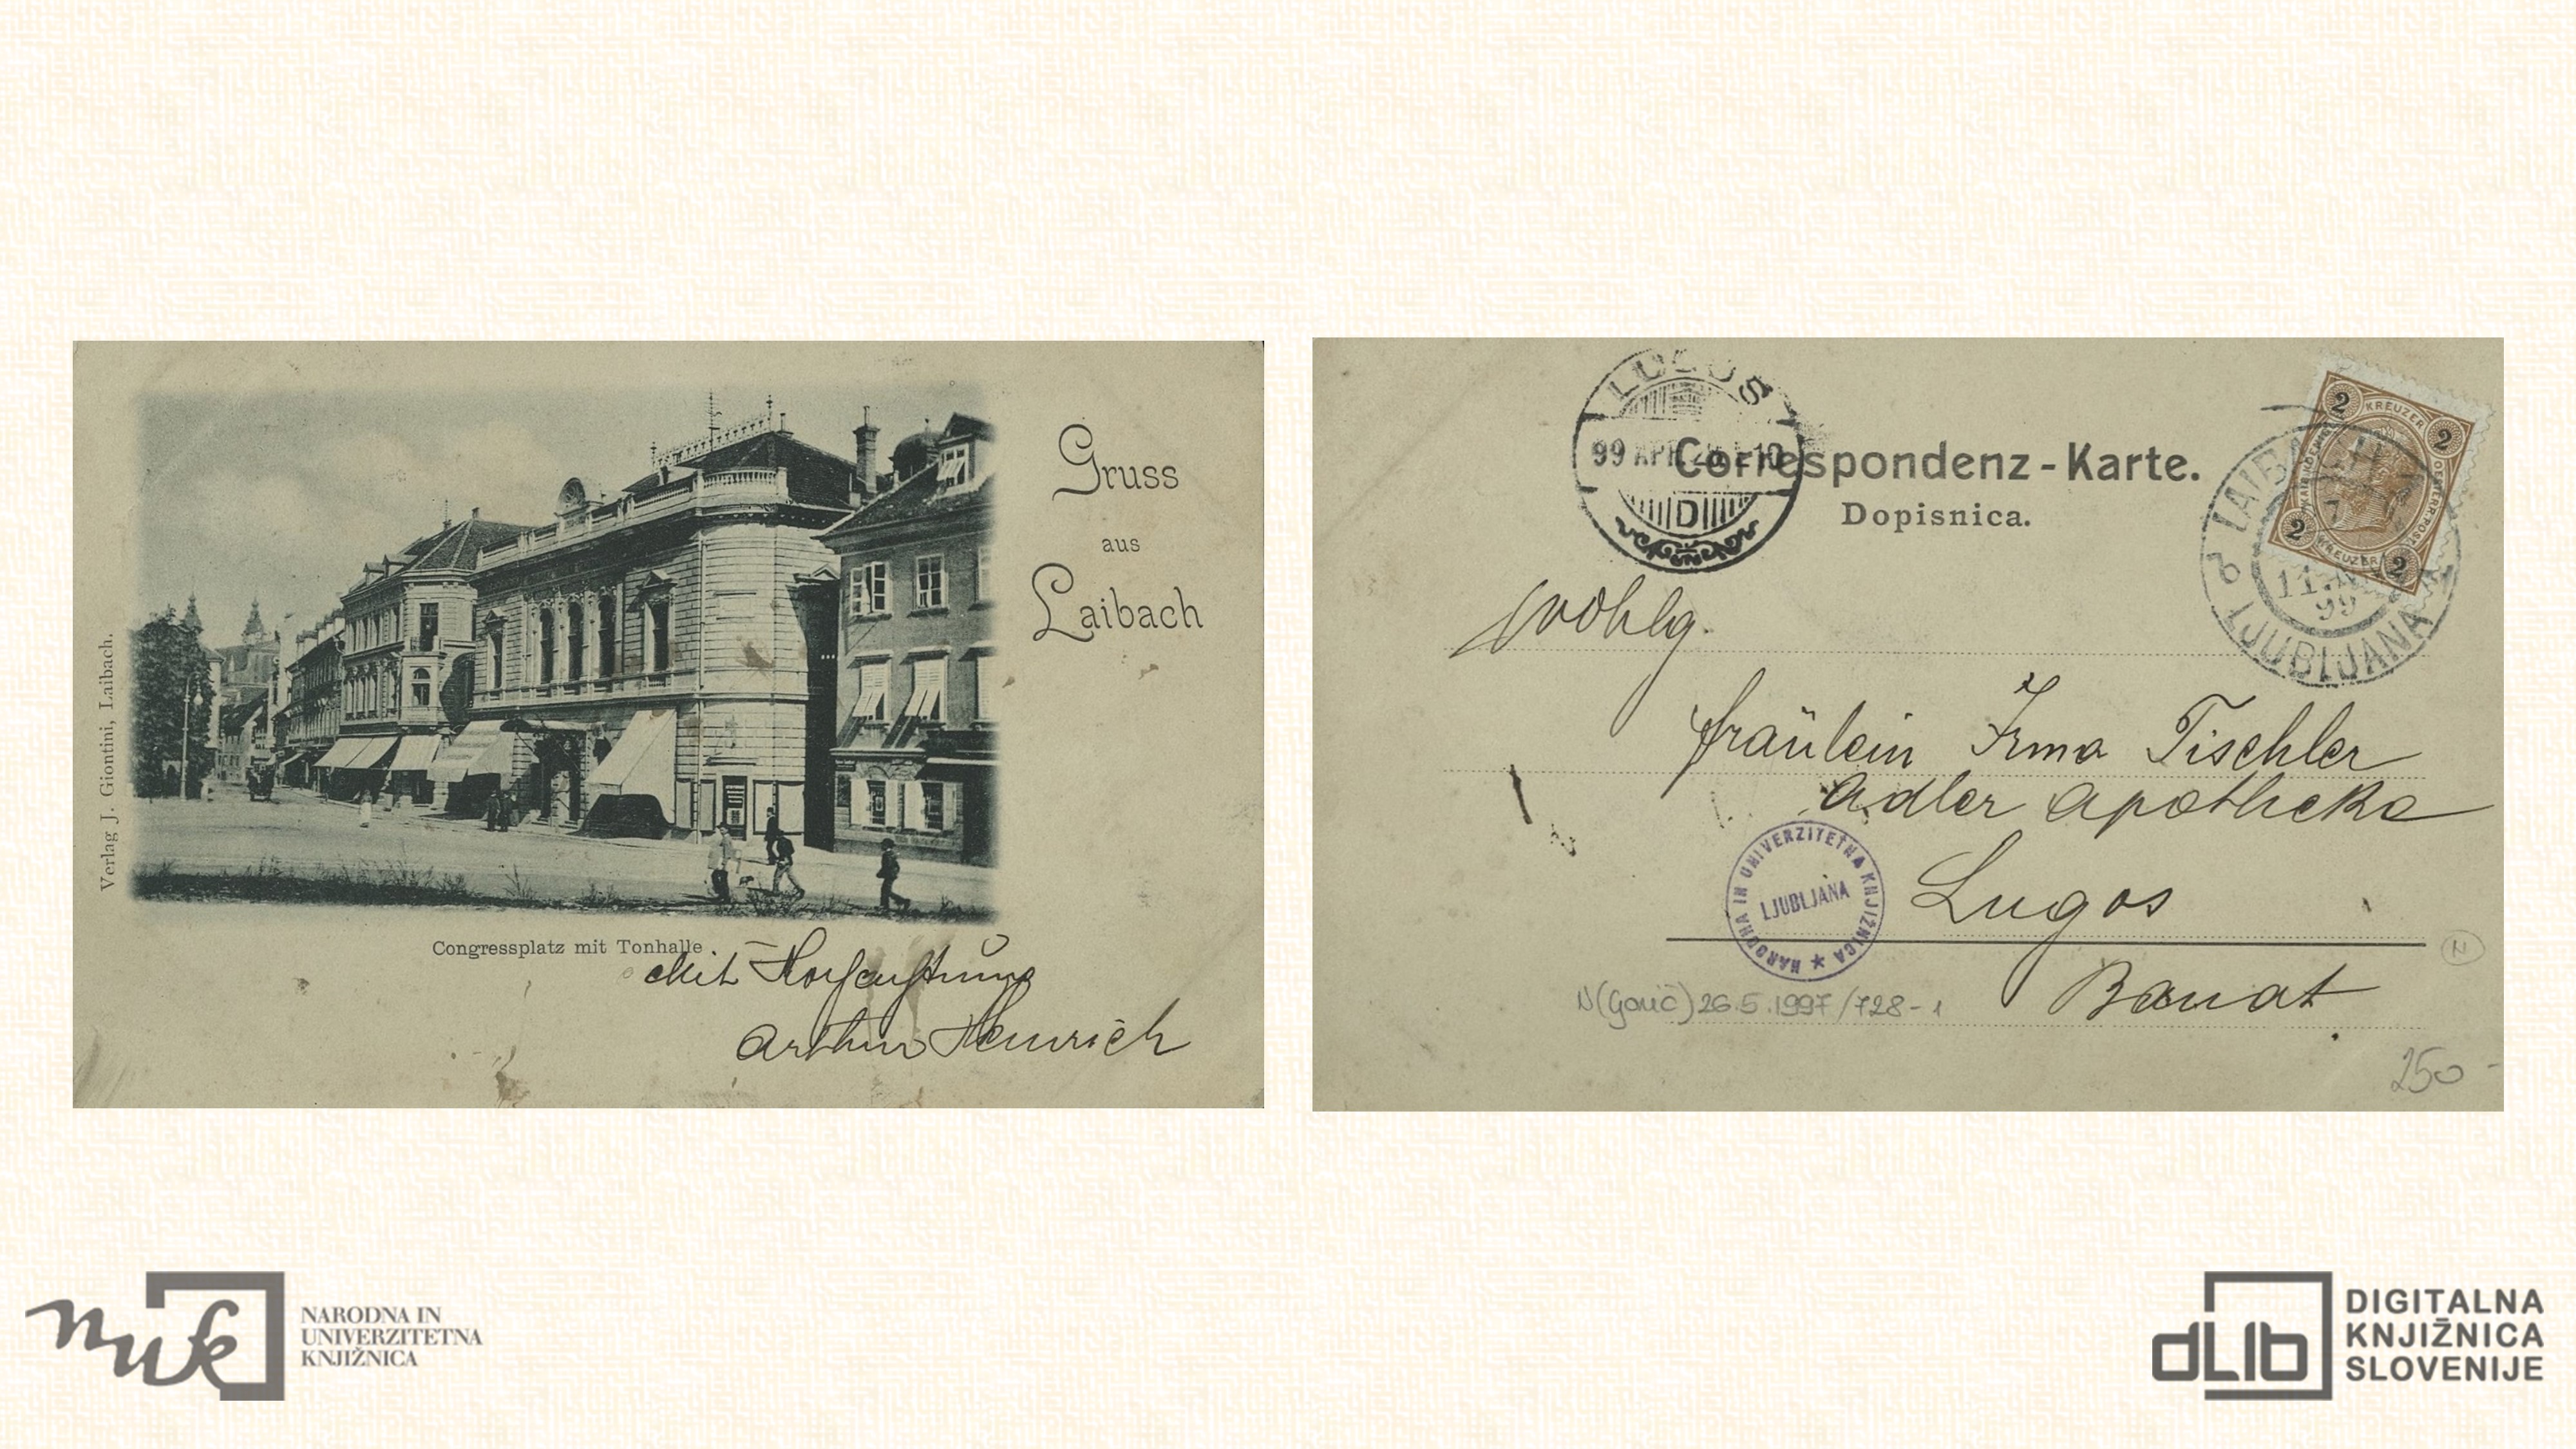 Gruss
aus
Laibach
Verlag J. Giontini, Laibach.
Congressplatz mit Tonhalle.
Mit
Arthur Heinrich
LUGOS
99 APR
D
Correspondenz-Karte.
Dopisnica.
2 KREUZER 2
2 KREUZER 2
LAIBACH
11
99
LJUBLJANA
Wohlg.
Fräulein Irma Tischler
Adler Apotheke
Lugos
Banat
NARODNA IN UNIVERZITETNA KNJIŽNICA ★
LJUBLJANA
N
N(Gorič) 26.5.1997/728-1
250-
nuk
NARODNA IN
UNIVERZITETNA
KNJIŽNICA
dLib
DIGITALNA
KNJIŽNICA
SLOVENIJE